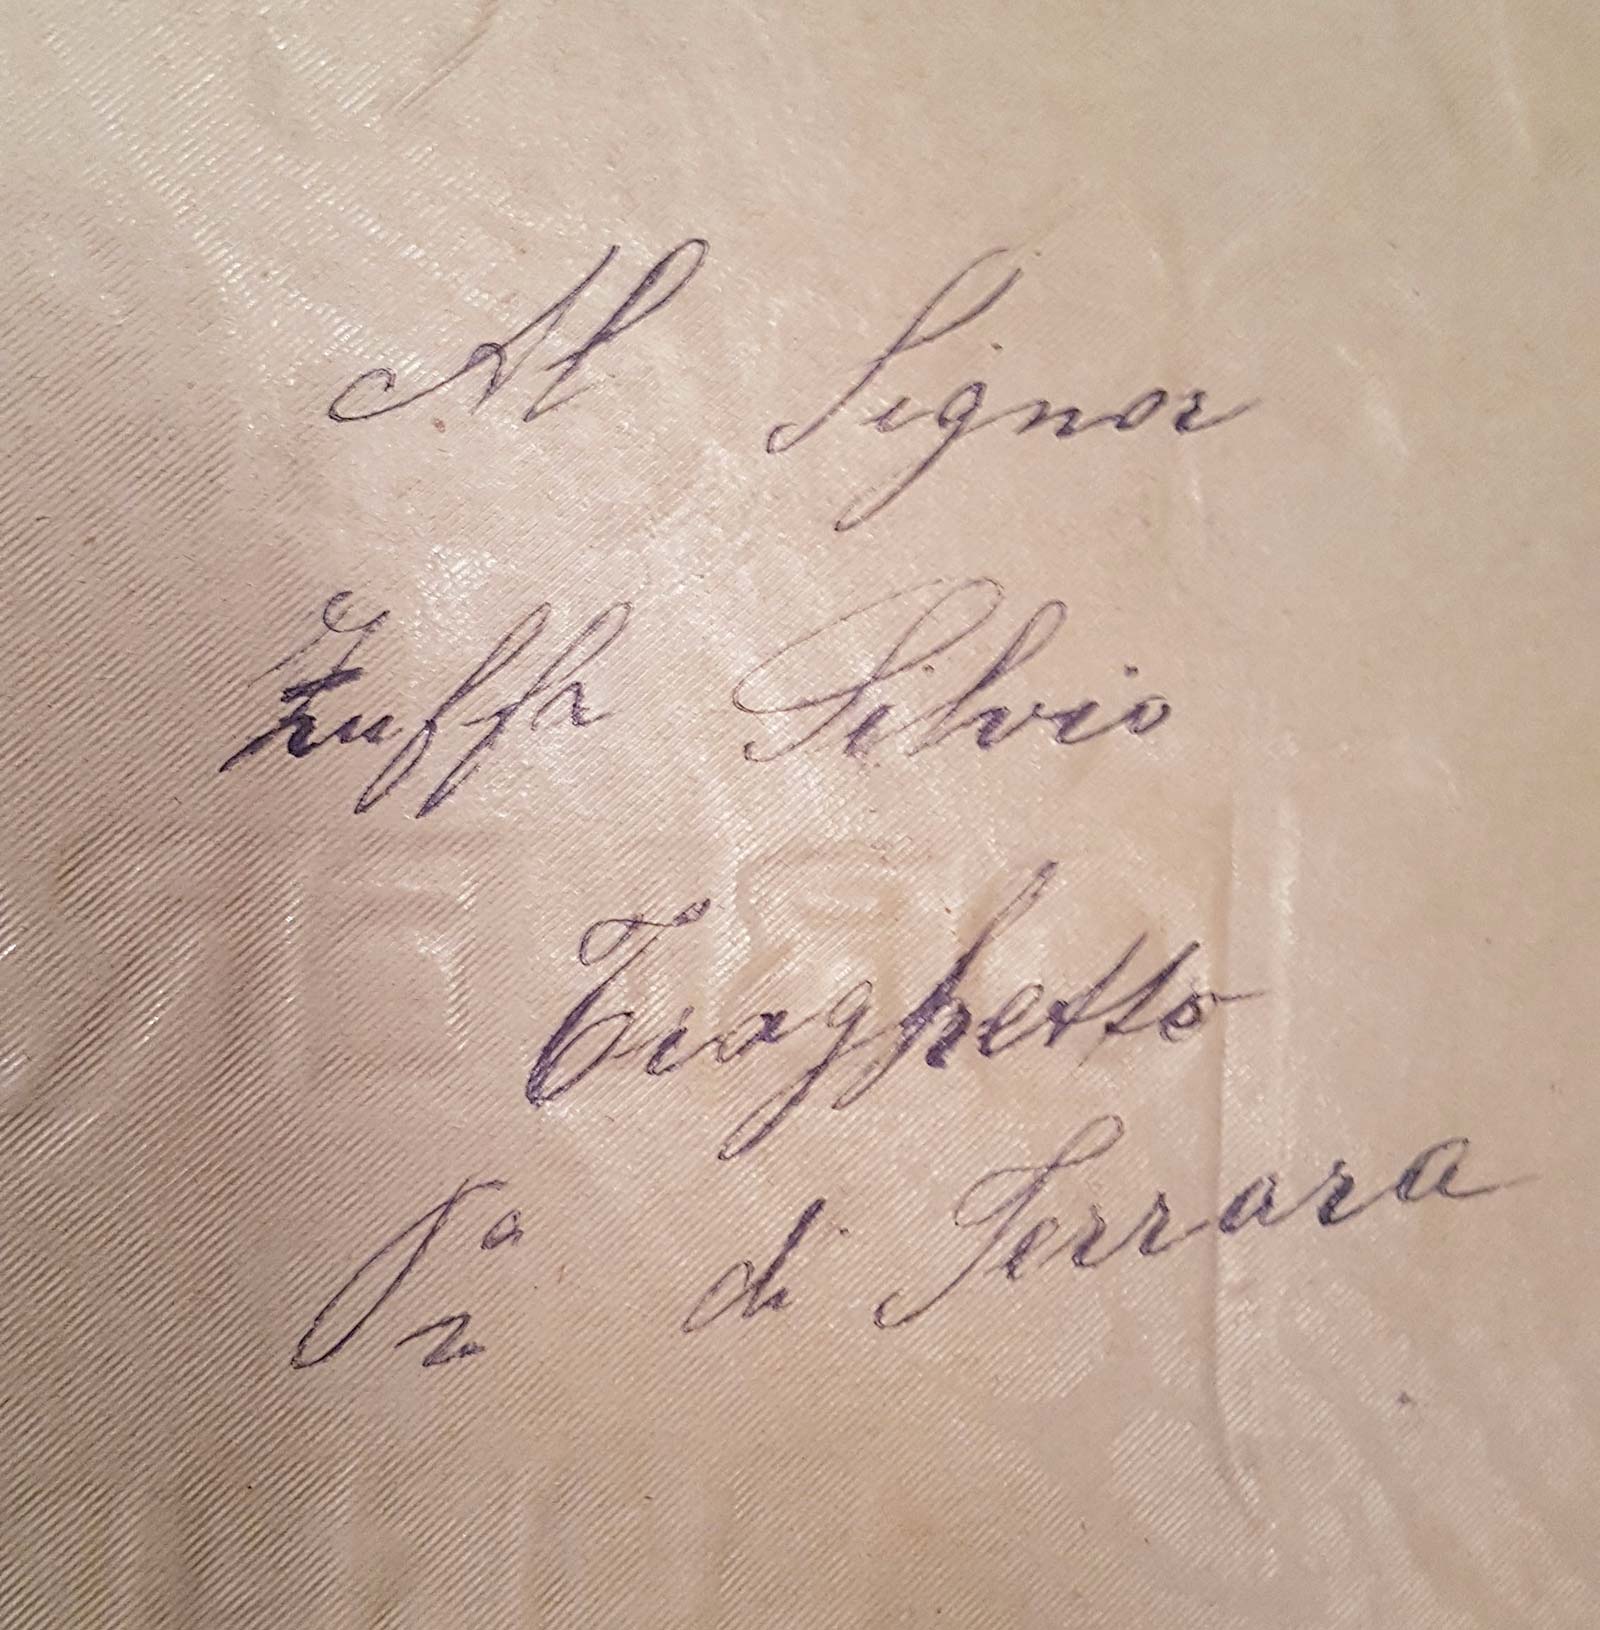 Al Signor
Zuffa Silvio
Traghetto
Pª di Ferrara